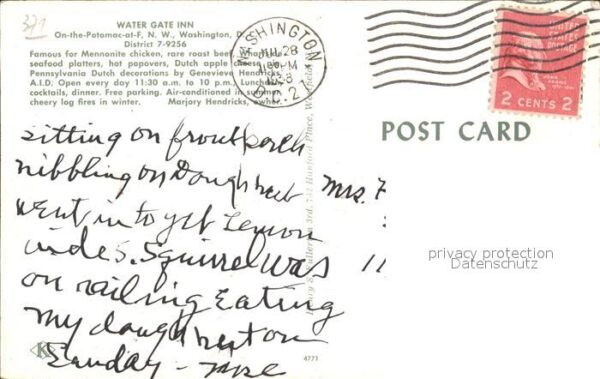 321
WATER GATE INN
On-the-Potomac-at-F, N. W., Washington, D.
District 7-9256
Famous for Mennonite chicken, rare roast beef, Wharf
seafood platters, hot popovers, Dutch apple cheese
Pennsylvania Dutch decorations by Genevieve Hendricks,
A.I.D. Open every day 11:30 a.m. to 10 p.m. Luncheon,
cocktails, dinner. Free parking. Air-conditioned in summer,
cheery log fires in winter. Marjory Hendricks, owner
WASHINGTON
JUL 28
PM
1958
D.C. 2
UNITED STATES
POSTAGE
2 CENTS 2
POST CARD
sitting on front porch
nibbling on Doughnut
went in to get Lemon
inde S. Squirrel was
on railing Eating
my doughnut on
Sunday -
Mrs.
privacy protection
Datenschutz
K
4771